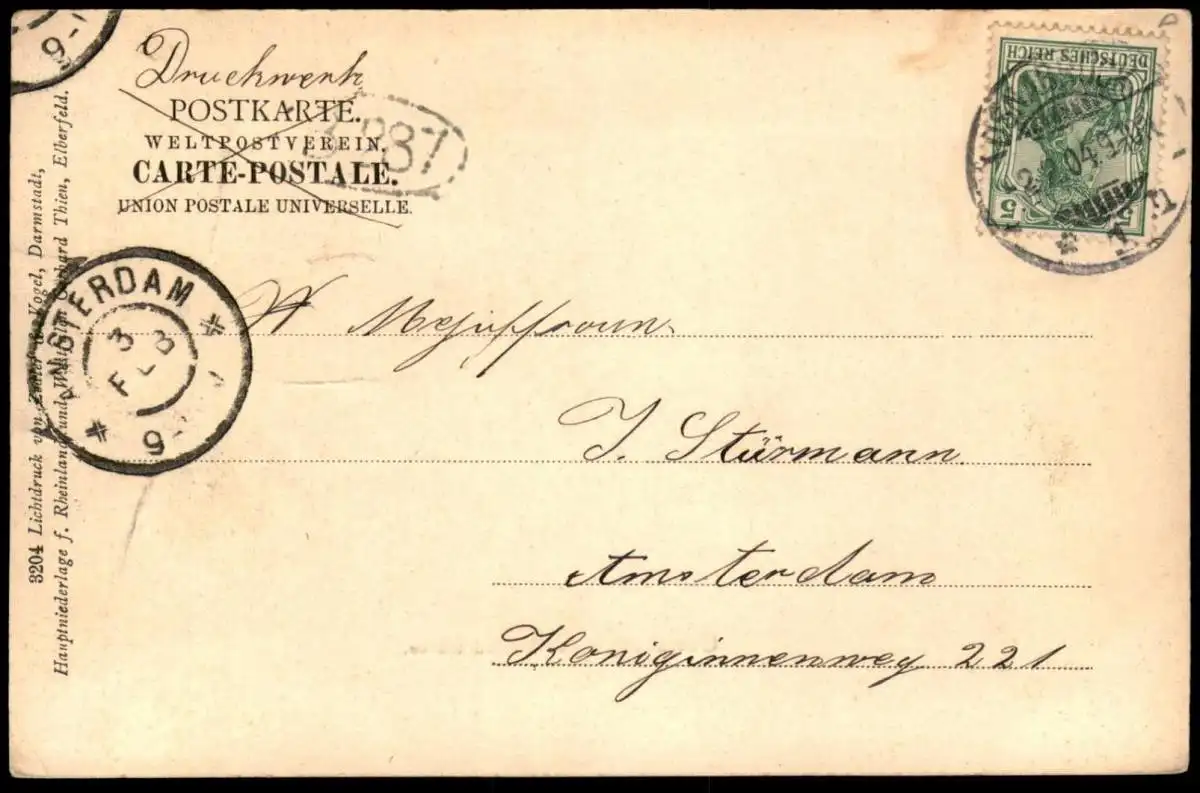 Druckwerk
POSTKARTE.
WELTPOSTVEREIN.
CARTE-POSTALE.
UNION POSTALE UNIVERSELLE.
887
DEUTSCHES REICH
5 5
04.9
9-
AMSTERDAM
3
FEB
9-
Mejuffrouw
J. Stürmann
Amsterdam
Koniginnenweg 221
3204 Lichtdruck von Zedler & Vogel, Darmstadt,
Hauptniederlage f. Rheinland und Westfalen Gerhard Thien, Elberfeld.